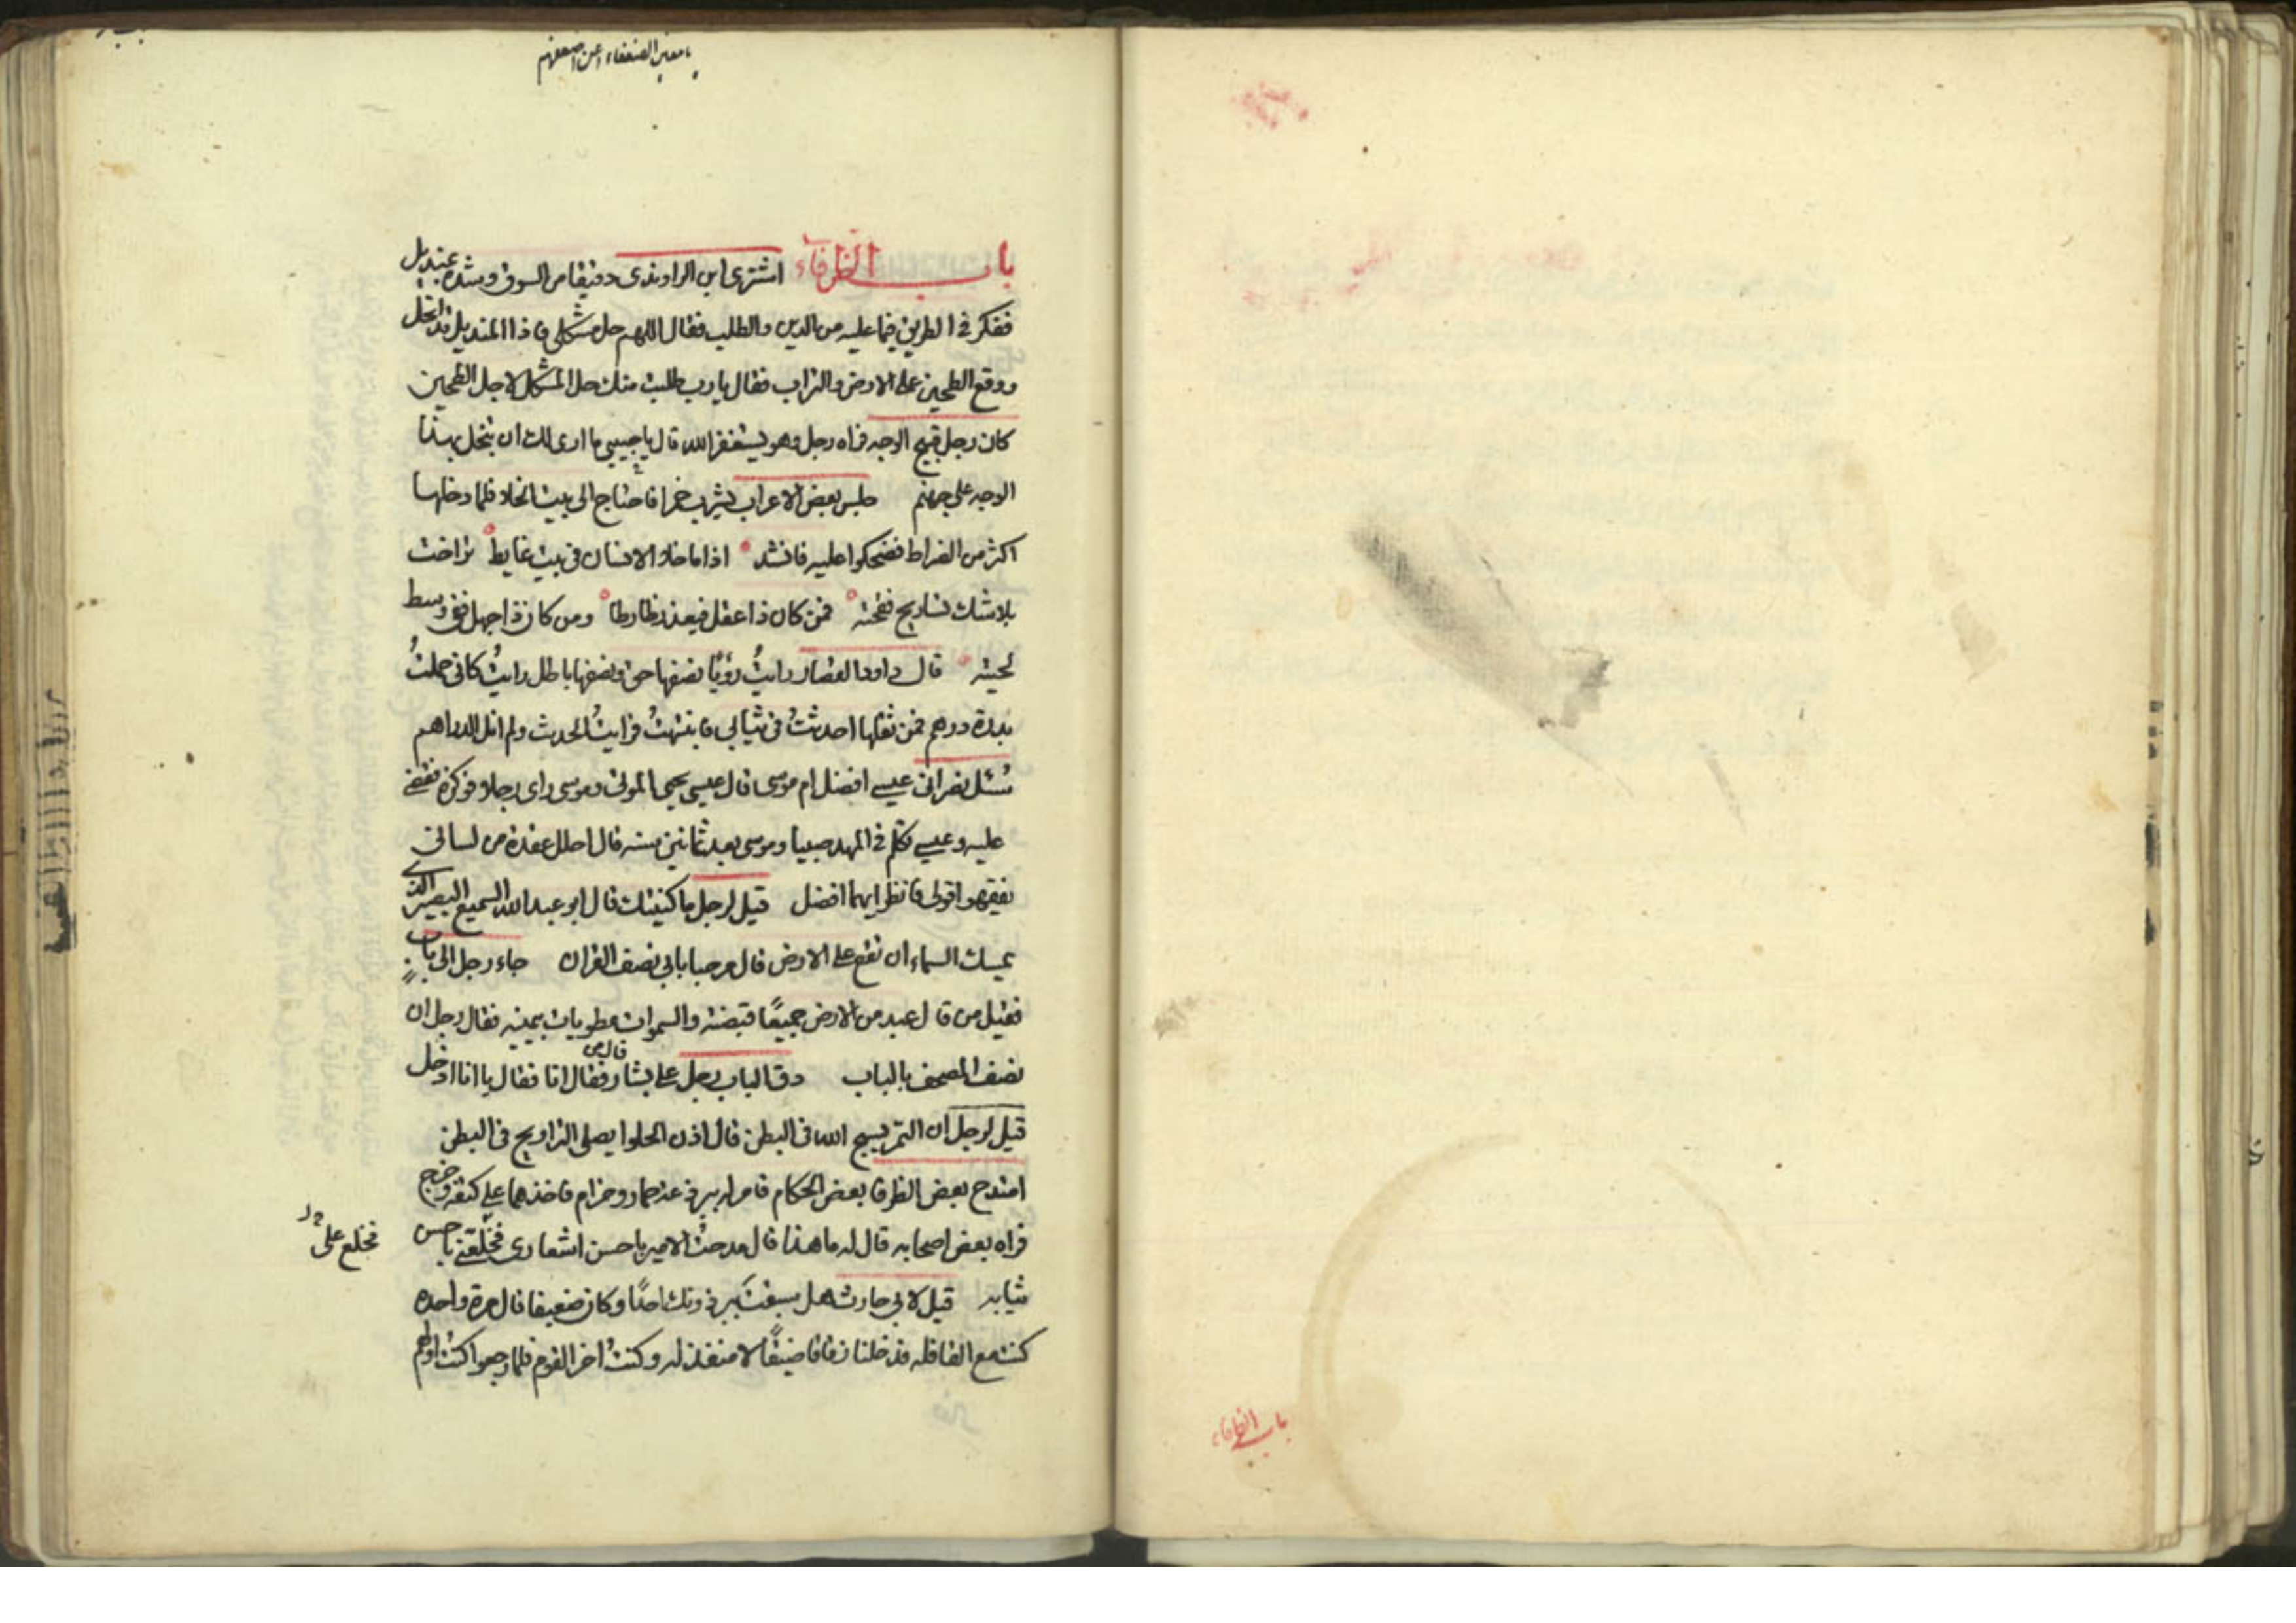 باب الظرفاء
يا معين الضعفاء اعن اضعفهم
باب الظرفاء اشترى ابن الراوندى دقيقا من السوق وشده بمنديل
ففكر في الطريق فيما عليه من الدين والطلب فقال اللهم حل مشكلى فاذا المنديل قد انحل
ووقع الطحين على الارض والتراب فقال يا رب طلبت منك حل المشكل لا حل الطحين
كان رجل قبيح الوجه فراه رجل وهو يستغفر الله قال يا حبيبي ما ارى لك ان تبخل بهذا
الوجه على جهنم جلس بعض الاعراب يشرب خمرا فاحتاج الى بيت الخلا فلما دخلها
اكثر من الضراط فضحكوا عليه فانشد اذا ما خلا الانسان في بيت غايط تراخت
بلا شك تساريح فقحته فمن كان ذا عقل فيعذر ظارطا ومن كان ذا جهل ففى وسط
لحيته قال داود القصار رايتُ رؤيًا نصفها حق ونصفها باطل رايتُ كانى حملتُ
بدرة درهم فمن ثقلها احدثتُ في ثيابي فانتبهتُ فرايتُ الحدث ولم انل الدراهم
سُئل نصرانى عيسى افضل ام موسى قال عيسى يحيى الموتى وموسى راى رجلا فوكزه فقضى
عليه وعيسى تكلم في المهد صبيا وموسى بعد ثمانين سنه قال احلل عقدة من لسانى
يفقهوا قولى فانظر ايهما افضل قيل لرجل ما كنيتك قال ابو عبد الله السميع البصير الذى
يمسك السماء ان تقع على الارض قال مرحبا بابي نصف القران جاء رجل الى باب
فقيل من قال عبد من الارض جميعًا قبضته والسموات مطويات بيمينه فقال رجل ان
نصف المصحف بالباب دق الباب رجل على بشار قال من فقال انا فقال يا انا ادخل
قيل لرجل ان التمر يسبح الله في البطن قال اذن الحلوا يصلى التراويح في البطن
امتدح بعض الظرفا بعض الحكام فامر له ببرذعة حمار وحزام فاخذهما على كتفه وخرج
فراه بعض اصحابه قال له ما هذا قال مدحتُ الامير باحسن اشعارى فخلّعنى باحسن
فخلع على
ثيابه قيل لابي حارث هل سبقت ببرذونك احدًا وكان ضعيفا قال مرة واحده
كنت مع القافله فدخلنا زقاقا ضيقًا لا منفذ له وكنتُ اخر القوم فلما رجعوا كنت اولهم